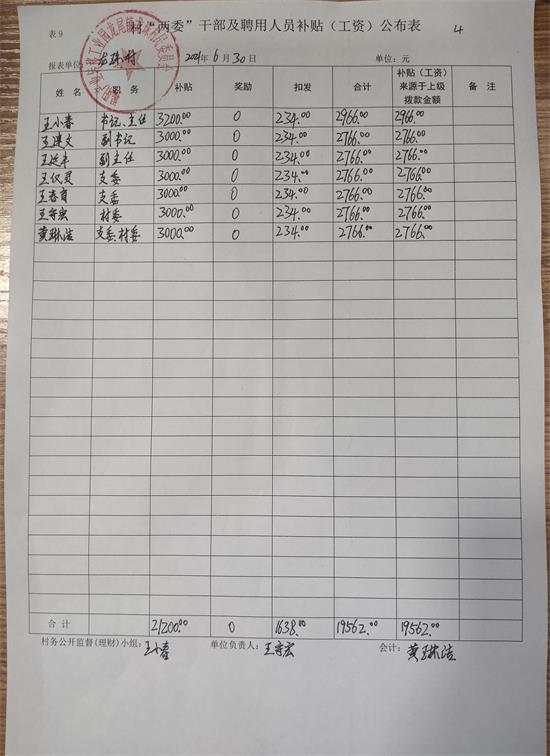 表9 村“两委”干部及聘用人员补贴（工资）公布表 4
报表单位: 2021年6月30日 单位: 元
姓名 职务 补贴 奖励 扣发 合计 补贴（工资）来源于上级拨款金额 备注
王小春 书记、主任 3200.00 0 234.00 2966.00 2966.00
王建文 副书记 3000.00 0 234.00 2766.00 2766.00
王 副主任 3000.00 0 234.00 2766.00 2766.00
王仪 支委 3000.00 0 234.00 2766.00 2766.00
王春 支委 3000.00 0 234.00 2766.00 2766.00
王守宏 村委 3000.00 0 234.00 2766.00 2766.00
黄琳洁 支委、村委 3000.00 0 234.00 2766.00 2766.00
合计 21200.00 0 1638.00 19562.00 19562.00
村务公开监督(理财)小组: 王小春 单位负责人: 王守宏 会计: 黄琳洁